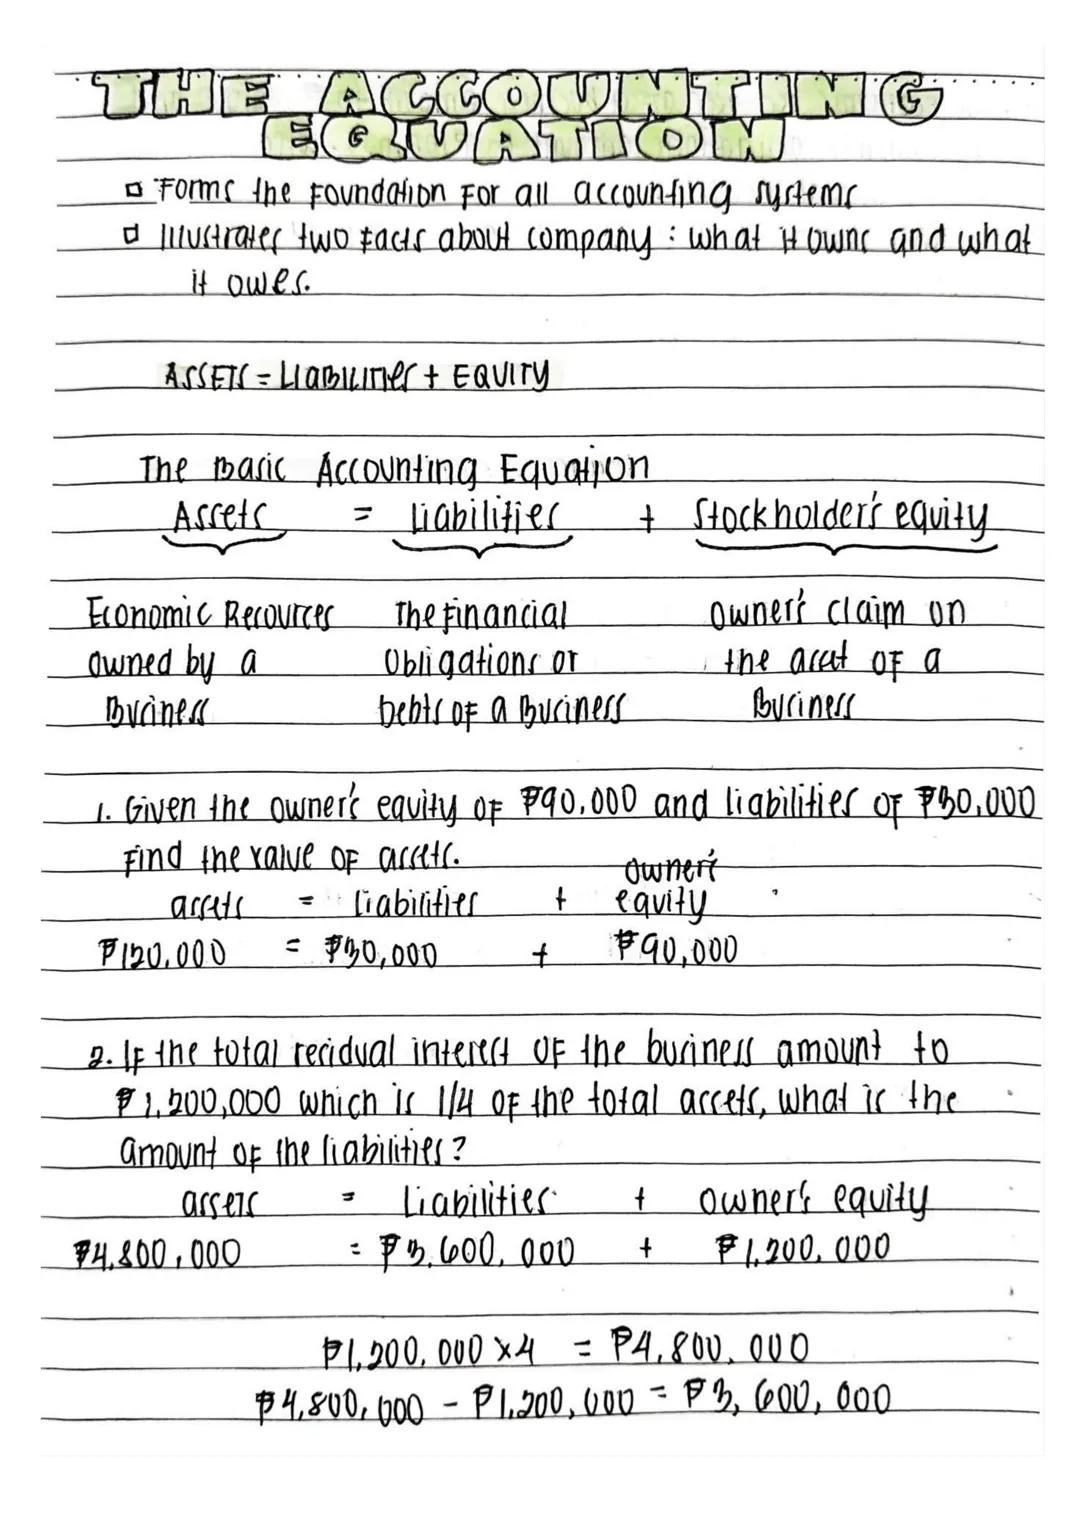 THE ACCOUNTING
EQUATION
Forms the foundation for all accounting systems
Illustrates two facts about company : what it owns and what
it owes.
ASSETS = LIABILITIES + EQUITY
The Basic Accounting Equation
Assets = Liabilities + Stockholder's equity
Economic Resources The financial owner's claim on
owned by a Obligations or the asset of a
Business debts of a Business Business
1. Given the owner's equity of ₱90,000 and liabilities of ₱30,000
Find the value of assets.
assets = liabilities + owner's equity
₱120,000 = ₱30,000 + ₱90,000
2. If the total residual interest of the business amount to
₱1,200,000 which is 1/4 of the total assets, what is the
amount of the liabilities?
assets = Liabilities + owner's equity
₱4,800,000 = ₱3,600,000 + ₱1,200,000
₱1,200,000 x4 = ₱4,800,000
₱4,800,000 - ₱1,200,000 = ₱3,600,000